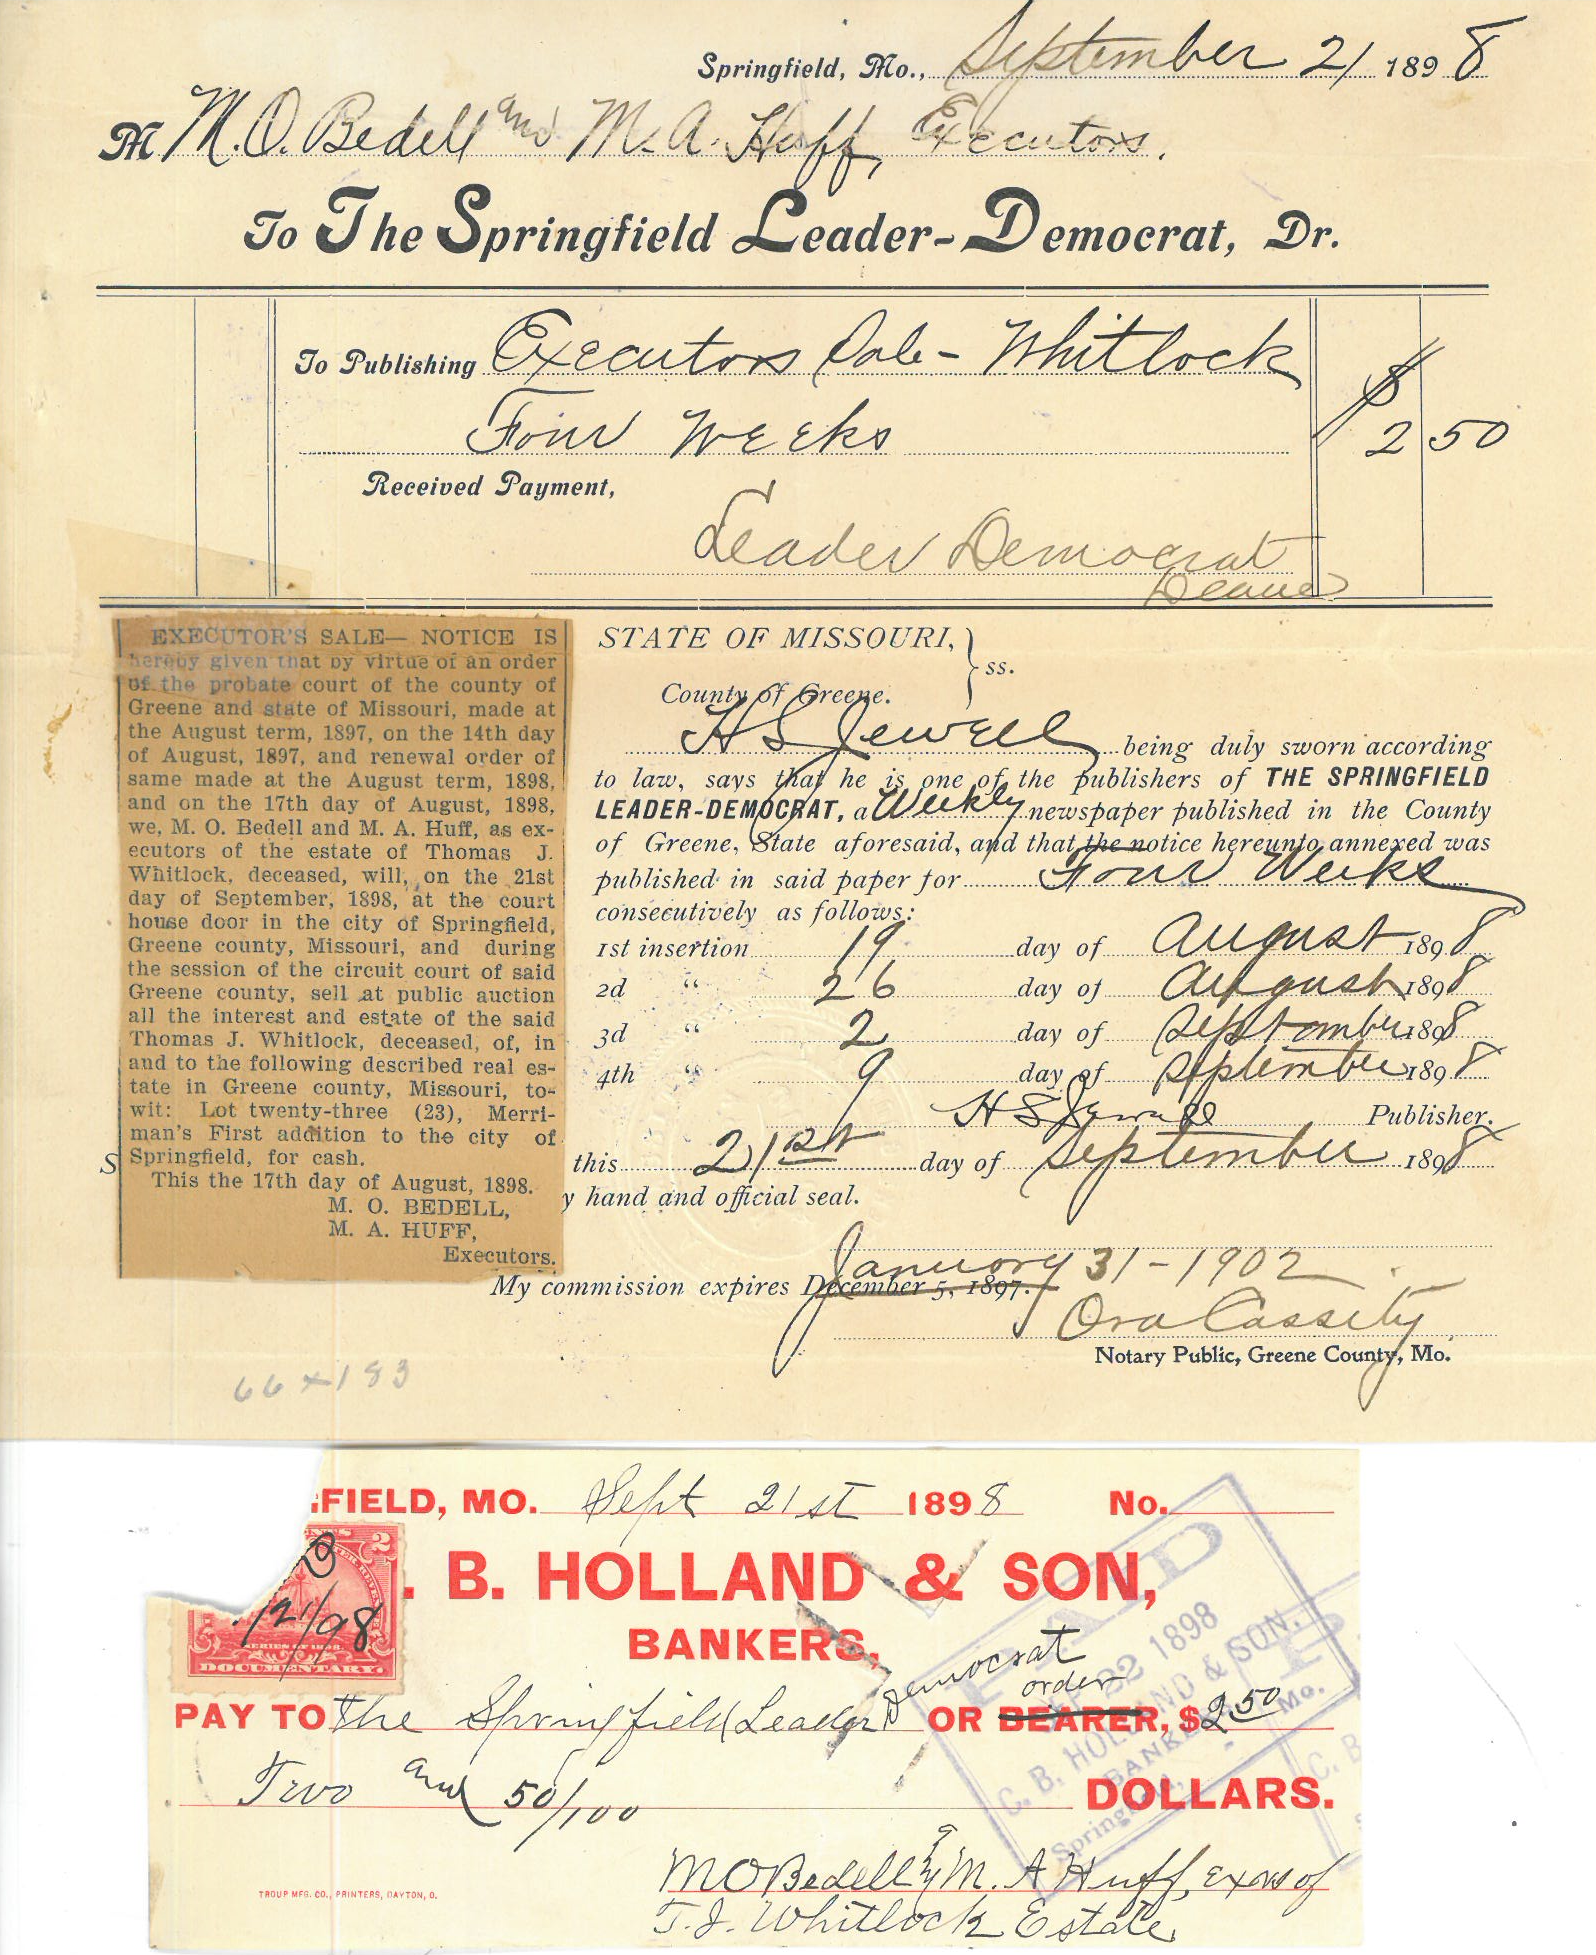 Springfield, Mo., September 21 1898
M M. O. Bedell and M. A. Huff, Executors.
To The Springfield Leader-Democrat, Dr.
To Publishing Executors Sale - Whitlock
$
Four Weeks 2 50
Received Payment,
Leader Democrat
Deane
EXECUTOR'S SALE— NOTICE IS
hereby given that by virtue of an order
of the probate court of the county of
Greene and state of Missouri, made at
the August term, 1897, on the 14th day
of August, 1897, and renewal order of
same made at the August term, 1898,
and on the 17th day of August, 1898,
we, M. O. Bedell and M. A. Huff, as ex-
ecutors of the estate of Thomas J.
Whitlock, deceased, will, on the 21st
day of September, 1898, at the court
house door in the city of Springfield,
Greene county, Missouri, and during
the session of the circuit court of said
Greene county, sell at public auction
all the interest and estate of the said
Thomas J. Whitlock, deceased, of, in
and to the following described real es-
tate in Greene county, Missouri, to-
wit: Lot twenty-three (23), Merri-
man's First addition to the city of
Springfield, for cash.
This the 17th day of August, 1898.
M. O. BEDELL,
M. A. HUFF,
Executors.
STATE OF MISSOURI,
ss.
County of Greene.
H S Jewell being duly sworn according
to law, says that he is one of the publishers of THE SPRINGFIELD
LEADER-DEMOCRAT, a Weekly newspaper published in the County
of Greene, State aforesaid, and that the notice hereunto annexed was
published in said paper for Four Weeks
consecutively as follows:
1st insertion 19 day of August 1898
2d " 26 day of August 1898
3d " 2 day of September 1898
4th " 9 day of September 1898
H S Jewell Publisher.
S this 21st day of September 1898
y hand and official seal.
January 31-1902
My commission expires December 5, 1897.
Ora Cassity
Notary Public, Greene County, Mo.
66 x 183
FIELD, MO. Sept 21st 1898 No.
2
. B. HOLLAND & SON,
BANKERS.
/21/98
DOCUMENTARY.
PAY TO the Springfield Leader Democrat OR BEARER, order $2 50
Two and 50/100 DOLLARS.
M O Bedell & M. A Huff, exors of
T. J. Whitlock Estate
TROUP MFG. CO., PRINTERS, DAYTON, O.
PAID
22 1898
C. B. HOLLAND & SON.
BANKERS
Springfield, Mo.
P
C. B